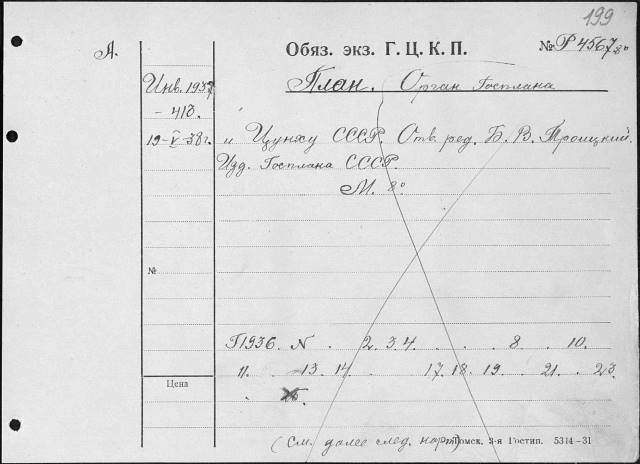 199
А.
Обяз. экз. Г. Ц. К. П.
№ Р 4567 8º
Инв. 1937
План. Орган Госплана
- 413.
19-V-38г.
и Цунху СССР. Отв. ред. Б. В. Троицкий.
Изд. Госплана СССР.
М. 8º
№
Г1936. N . 2. 3. 4. . . . 8 . 10.
11. . 13. 14 . . 17. 18. 19. . 21. . 23.
Цена
(См. далее след. карт.)
Томск. 3-я Гостип. 5314-31